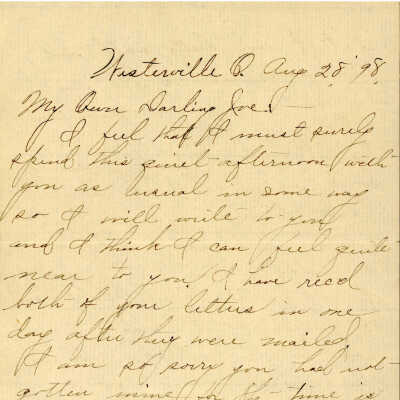 Westerville O. Aug 28 '98.
My Own Darling Joe! -
I feel that I must surely
spend this quiet afternoon with
you as usual in some way
so I will write to you
and I think I can feel quite
near to you. I have read
both of your letters in one
day after they were mailed
I am so sorry you had not
gotten mine time is